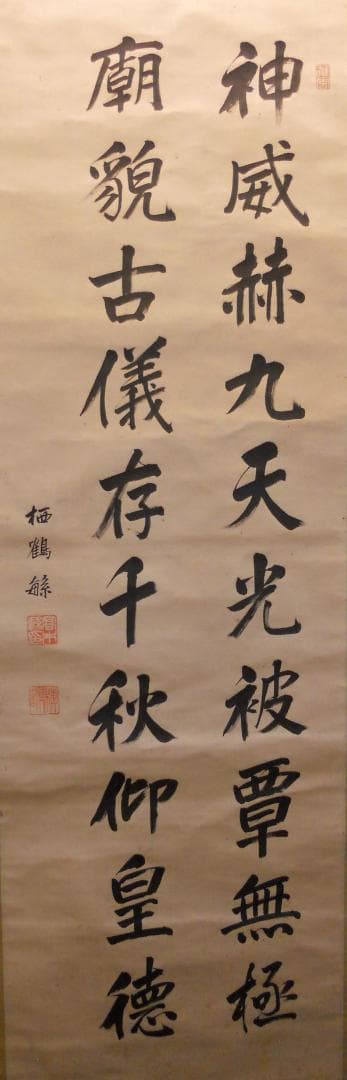 神威赫九天光被覃無極
廟貌古儀存千秋仰皇德
栖鶴緜